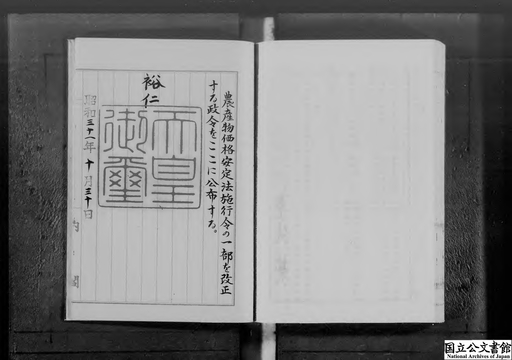 農産物価格安定法施行令の一部を改正
する政令をここに公布する。
裕仁
天皇御璽
昭和三十一年十月三十日
内閣
国立公文書館
National Archives of Japan